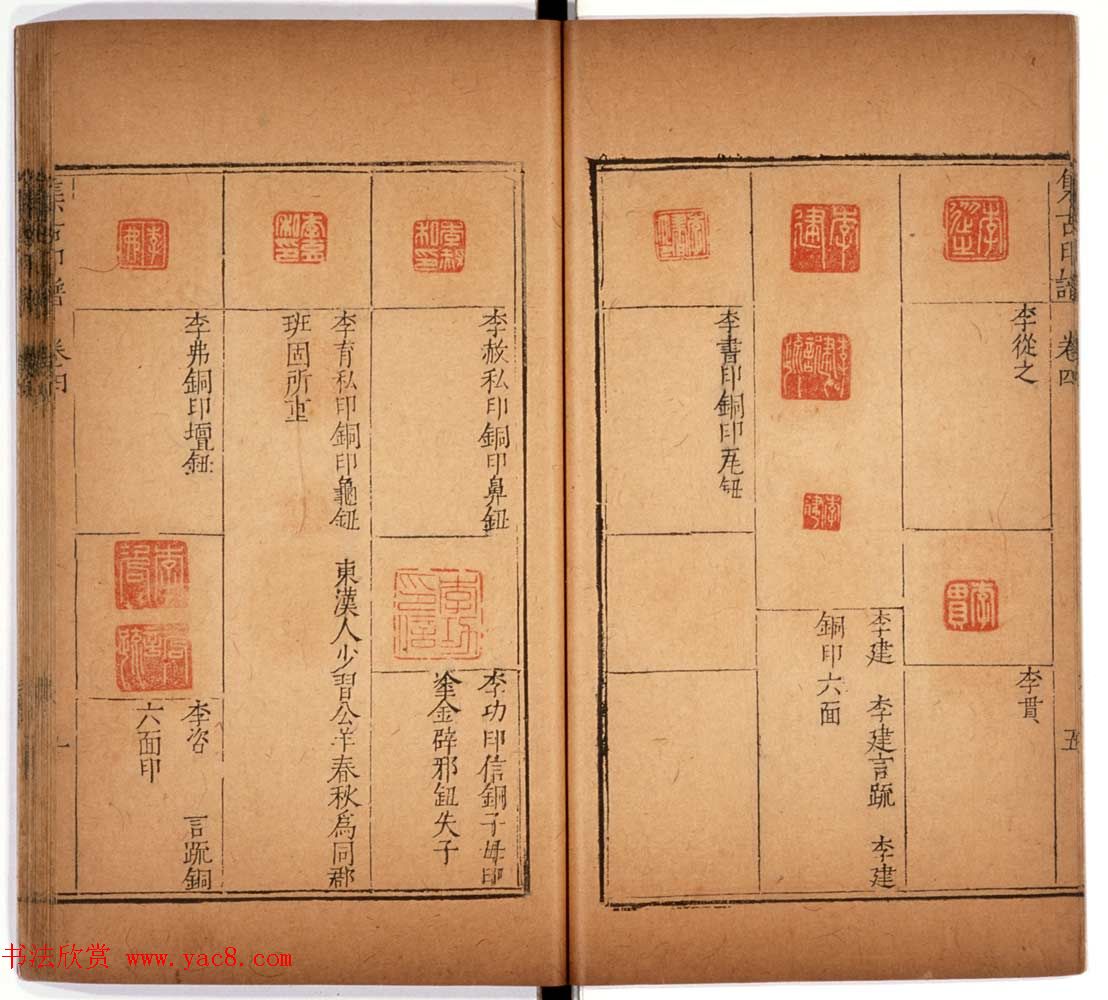 集古印譜 卷四 五
李從之
李貫
李建 李建言疏 李建
銅印六面
李書印銅印瓦鈕
李赦私印銅印鼻鈕
李功印信銅子母印
塗金辟邪鈕失子
李育私印銅印龜鈕 東漢人少習公羊春秋爲同郡
班固所重
李弗銅印壇鈕
李咨 言疏銅
六面印
集古印譜 卷四
书法欣赏 www.yac8.com